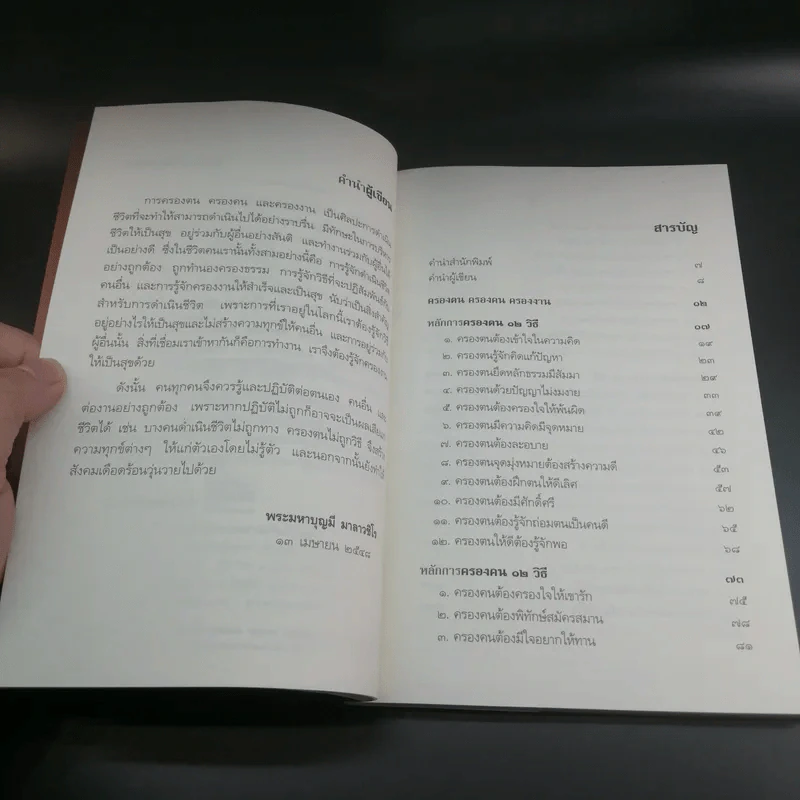 คำนำผู้เขียน
การครองตน ครองคน และครองงาน เป็นศิลปะการดำเนิน
ชีวิตที่จะทำให้สามารถดำเนินไปได้อย่างราบรื่น มีทักษะในการบริหาร
ชีวิตให้เป็นสุข อยู่ร่วมกับผู้อื่นอย่างสันติ และทำงานร่วมกับผู้อื่นได้
เป็นอย่างดี ซึ่งในชีวิตคนเรานั้นทั้งสามอย่างนี้คือ การรู้จักดำเนินชีวิต
อย่างถูกต้อง ถูกทำนองครองธรรม การรู้จักวิธีที่จะปฏิสัมพันธ์กับ
คนอื่น และการรู้จักครองงานให้สำเร็จและเป็นสุข นับว่าเป็นสิ่งสำคัญ
สำหรับการดำเนินชีวิต เพราะการที่เราอยู่ในโลกนี้เราต้องรู้จักวิธี
อยู่อย่างไรให้เป็นสุขและไม่สร้างความทุกข์ให้คนอื่น และการอยู่ร่วมกับ
ผู้อื่นนั้น สิ่งที่เชื่อมเราเข้าหากันก็คือการทำงาน เราจึงต้องรู้จักครองงาน
ให้เป็นสุขด้วย
ดังนั้น คนทุกคนจึงควรรู้และปฏิบัติต่อตนเอง คนอื่น และ
ต่องานอย่างถูกต้อง เพราะหากปฏิบัติไม่ถูกก็อาจจะเป็นผลเสียต่อ
ชีวิตได้ เช่น บางคนดำเนินชีวิตไม่ถูกทาง ครองตนไม่ถูกวิธี จึงสร้าง
ความทุกข์ต่างๆ ให้แก่ตัวเองโดยไม่รู้ตัว และนอกจากนั้นยังทำให้
สังคมเดือดร้อนวุ่นวายไปด้วย
พระมหาบุญมี มาลาวชิโร
๑๓ เมษายน ๒๕๔๘
สารบัญ
คำนำสำนักพิมพ์ ๗
คำนำผู้เขียน ๘
ครองตน ครองคน ครองงาน ๑๒
หลักการครองตน ๑๒ วิธี ๑๗
๑. ครองตนต้องเข้าใจในความคิด ๑๙
๒. ครองตนต้องรู้จักคิดแก้ปัญหา ๒๓
๓. ครองตนยึดหลักธรรมมีสัมมา ๒๙
๔. ครองตนด้วยปัญญาไม่งมงาย ๓๓
๕. ครองตนต้องครองใจให้พ้นผิด ๓๙
๖. ครองตนมีความคิดมีจุดหมาย ๔๒
๗. ครองตนต้องละอบาย ๔๖
๘. ครองตนจุดมุ่งหมายต้องสร้างความดี ๕๓
๙. ครองตนต้องฝึกตนให้ดีเลิศ ๕๗
๑๐. ครองตนต้องมีศักดิ์ศรี ๖๒
๑๑. ครองตนต้องรู้จักถ่อมตนเป็นคนดี ๖๕
๑๒. ครองตนให้ดีต้องรู้จักพอ ๖๘
หลักการครองคน ๑๒ วิธี ๗๓
๑. ครองคนต้องครองใจให้เขารัก ๗๕
๒. ครองคนต้องพิทักษ์สมัครสมาน ๗๘
๓. ครองคนต้องมีใจอยากให้ทาน ๘๑